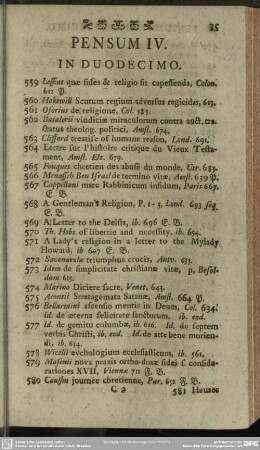 35
PENSUM IV.
IN DUODECIMO.
559 Lessius quæ fides & religio sit capessenda, Colon.
611 P.
560 Hakewill Scutum regium adversus regicidas, 613.
561 Osorius de religione, Col. 585.
562 Batalerii vindiciæ miraculorum contra auct. tra
ctatus theolog. politici, Amst. 674.
563 Clifford treatise of humane reason, Lond. 691.
564 Lettre sur l'histoire critique du Vieux Testa-
ment, Amst. Elz. 679.
565 Fouquet chretien des abusé du monde, Utr. 683.
566 Menasseh Ben Israel de termino vitæ, Amst. 639 P.
567 Cappellani mare Rabbinicum infidum, Paris 667.
E. B.
568 A Gentleman's Religion, P. 1-3. Lond. 693 seq.
E. B.
569 A Letter to the Deists, ib. 696 E. B.
570 Th. Hobs of libertie and necessity, ib. 654.
571 A Lady's religion in a letter to the Mylady
Howard, ib. 607 E. B.
572 Savonarolæ triumphus crucis, Antv. 633.
573 Idem de simplicitate christianæ vitæ, p. Besol-
dum 615.
574 Marino Dicerie sacre, Venet. 643.
575 Acontii Stratagemata Satanæ, Amst. 664 P.
576 Bellarmini ascensio mentis in Deum, Col. 634.
id. de æterna felicitate sanctorum. ib. eod.
577 Id. de gemitu columbæ, ib. 616. Id. de septem
verbis Christi, ib. eod. Id. de arte bene morien-
di, ib. 634.
578 Wicelii euchologium ecclesiasticum, ib. 561.
579 Maximii nova praxis orthodoxæ fidei s. conside-
rationes XVII, Viennæ 711 F. B.
580 Caussin journée chretienne, Par. 652 F. B.
C 2
581 Heures